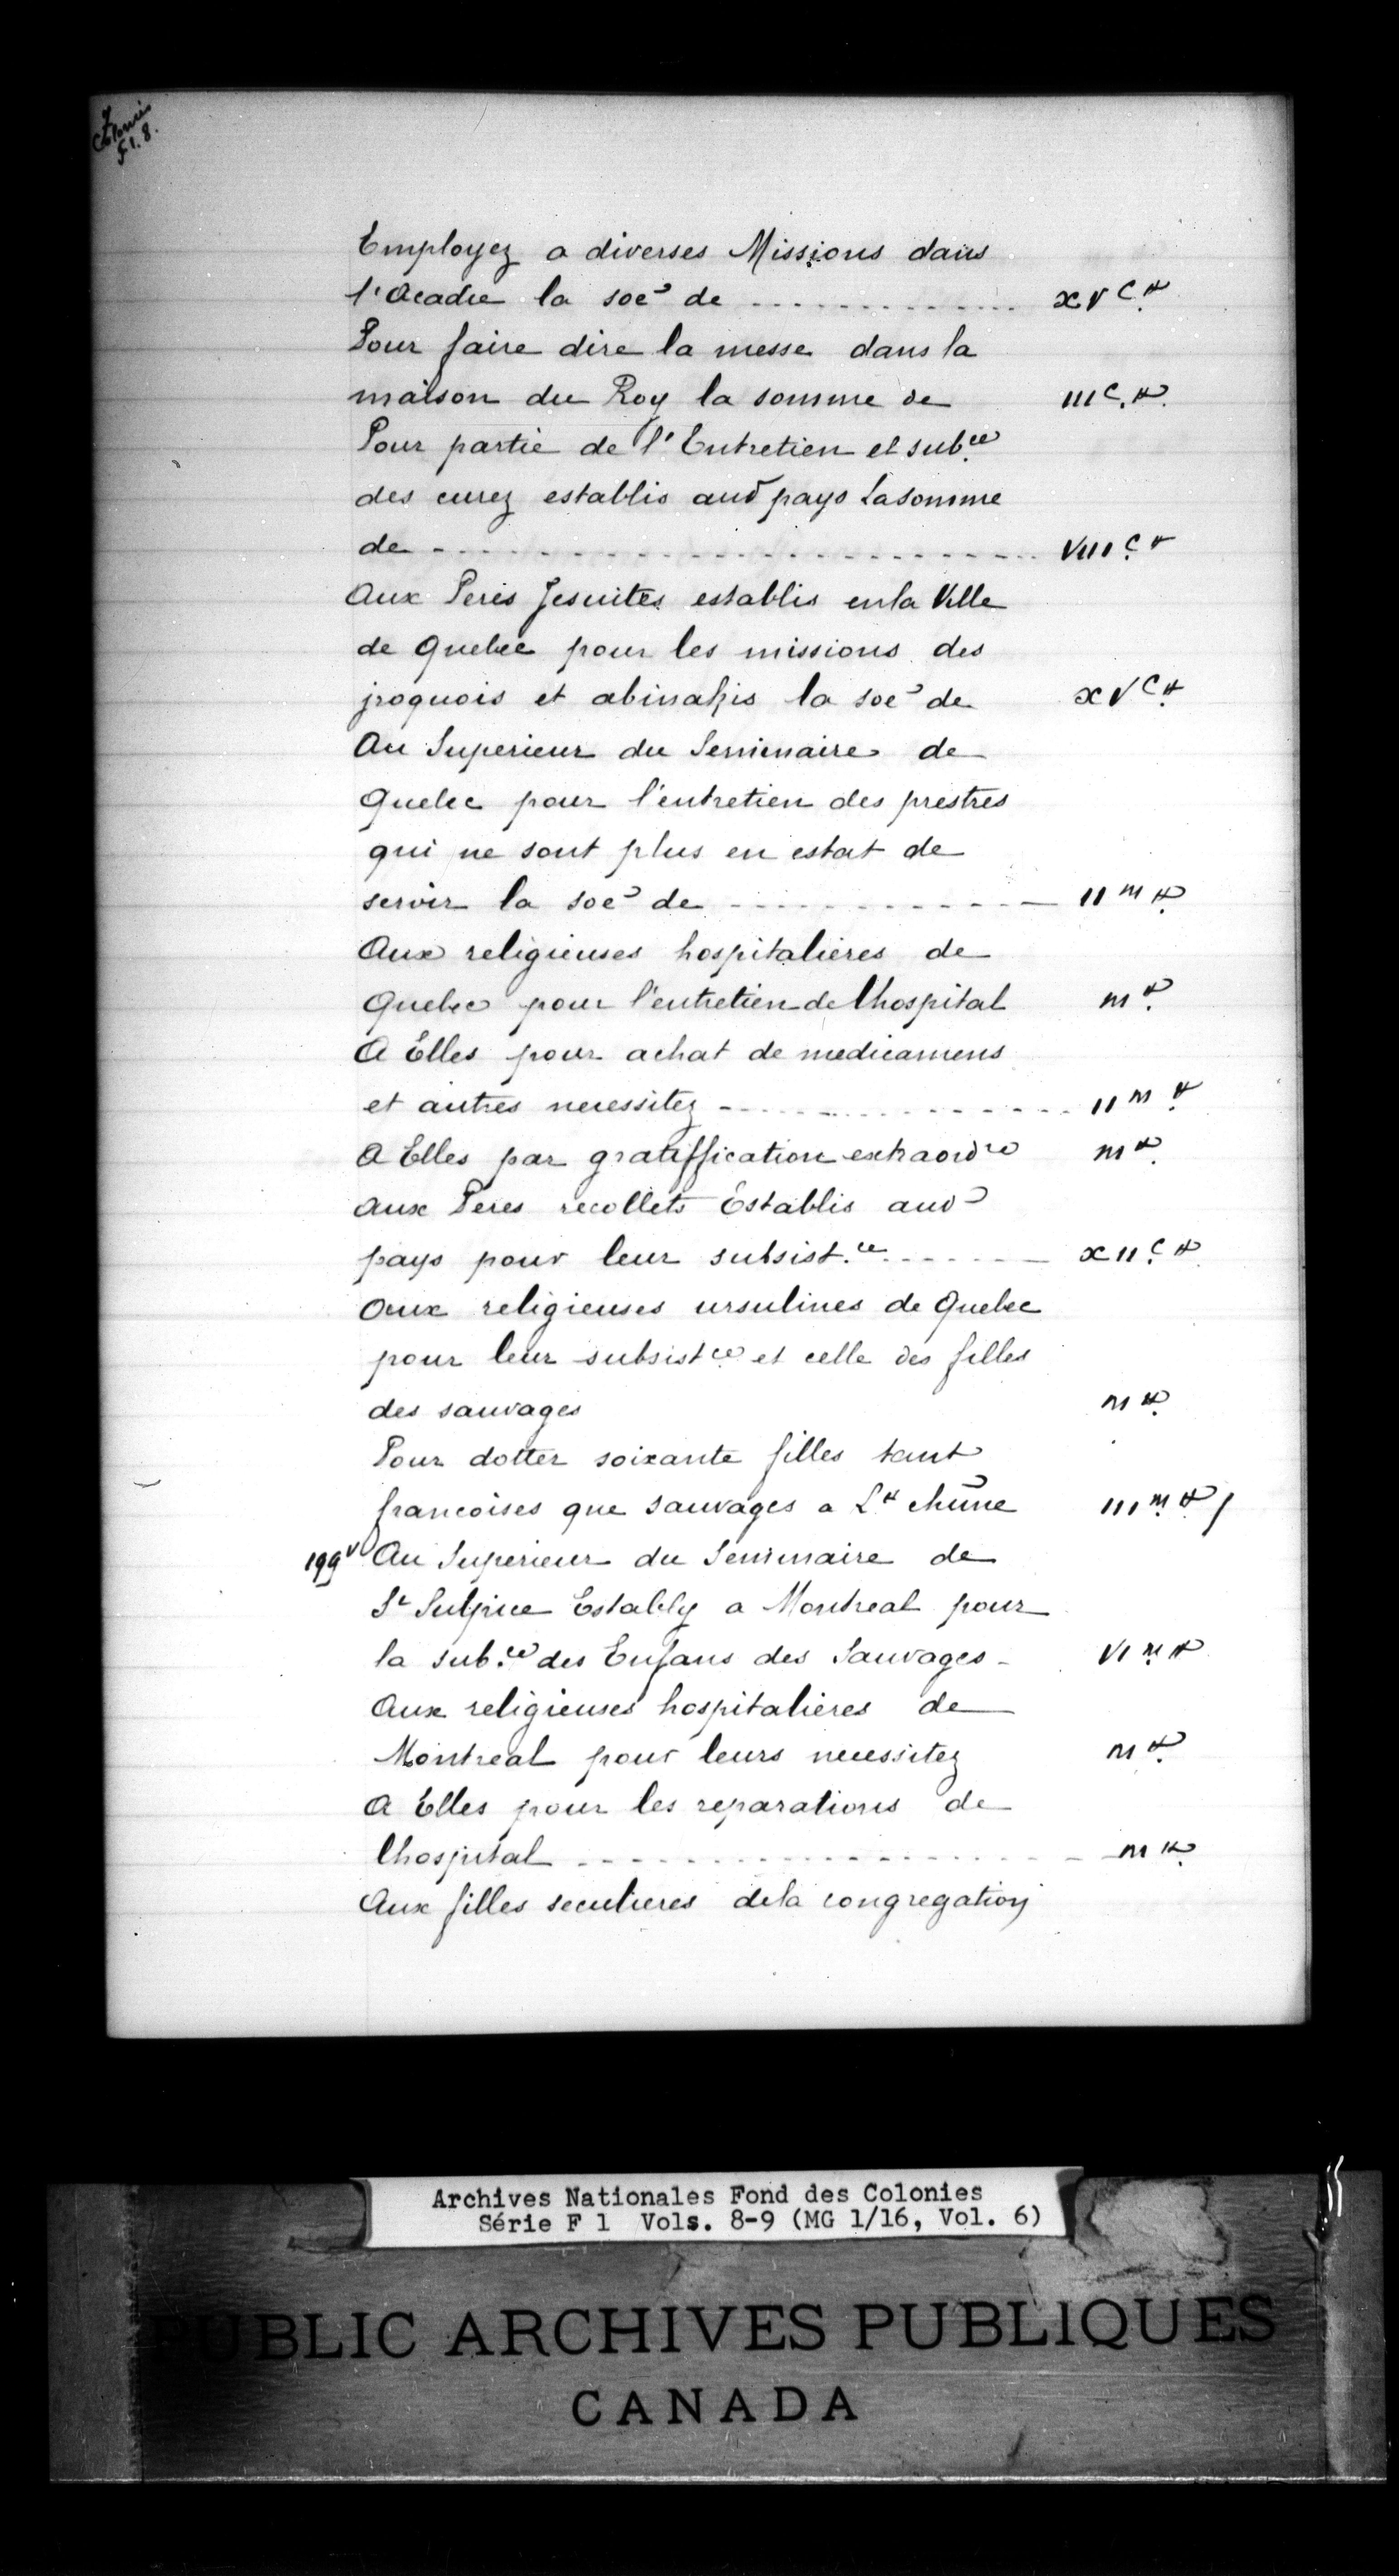 Colonies
F1. 8.
Employez a diverses Missions dans
l'Acadie la soe de ............. xvc.₶
Pour faire dire la messe dans la
maison du Roy la somme de IIIc.₶
Pour partie de l'Entretien et sub.ce
des curez establis aud pays La somme
de ........................ VIIIc.₶
Aux Peres Jesuites establis en la Ville
de Quebec pour les missions des
jroquois et abinakis la soe de xvc.₶
Au Superieur du Seminaire de
Quebec pour l'entretien des prestres
qui ne sont plus en estat de
servir la soe de ............. IIm ₶
Aux religieuses hospitalieres de
Quebec pour l'entretien de lhospital m ₶
A Elles pour achat de medicamens
et autres necessitez ................ IIm ₶
A Elles par gratiffication extraordre m ₶
Aux Peres recollets Establis aud
pays pour leur subsist.ce ....... xIIc.₶
Aux religieuses ursulines de Quebec
pour leur subsistce et celle des filles
des sauvages m ₶
Pour dotter soixante filles tant
francoises que sauvages a L₶ chune IIIm.₶ /
199v Au Superieur du Seminaire de
St Sulpice Estably a Montreal pour
la sub.ce des Enfans des Sauvages - VIm ₶
Aux religieuses hospitalieres de
Montreal pour leurs necessitez m ₶
A Elles pour les reparations de
lhospital .................... m ₶
Aux filles seculieres de la congregation
Archives Nationales Fond des Colonies
Série F 1 Vols. 8-9 (MG 1/16, Vol. 6)
PUBLIC ARCHIVES PUBLIQUES
CANADA